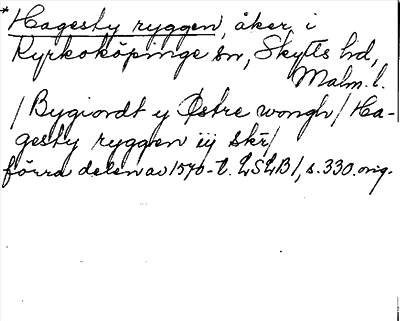 * Hagesty ryggen, åker i
Kyrkoköpinge sn, Skytts hd,
Malm. l.
/ Bygiordt y Østre wongh / Ha-
gesty ryggen iij skr /
förra delen av 1570-t. LSLB 1, s. 330. orig.